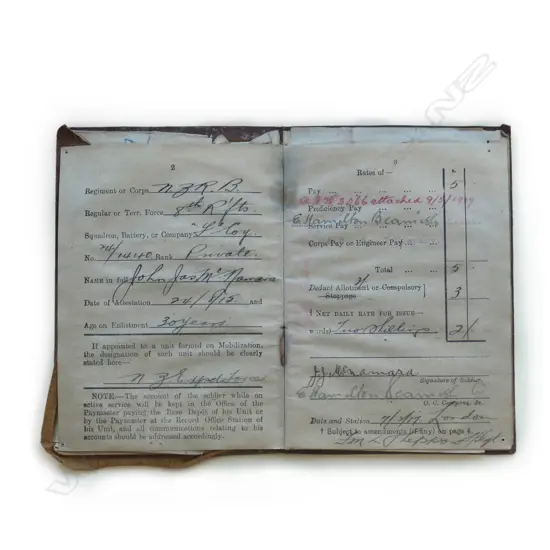 2
Regiment or Corps N Z R. B.
Regular or Terr. Force 8th R'fts.
Squadron, Battery, or Company "L" Coy.
No. 24/1440 Rank Private.
NAME in full John Jas Mc Namara
Date of Attestation 24/9/15 and
Age on Enlistment 30 years
If appointed to a unit formed on Mobilization,
the designation of such unit should be clearly
stated here—
N Z Expd. Force
NOTE—The account of the soldier while on
active service will be kept in the Office of the
Paymaster paying the Base Depôt of his Unit or
by the Paymaster at the Record Office Station of
his Unit, and all communications relating to his
accounts should be addressed accordingly.
3
Rates of—
Pay ... 5
attached
Proficiency Pay
E Hamilton Beamish
Service Pay
Corps Pay or Engineer Pay
Total ... 5
Deduct Allotment or Compulsory
Stoppage 3
† NET DAILY RATE FOR ISSUE—
words) Two Shillings 2/
J J McNamara
Signature of Soldier.
E Hamilton Beamish
O. C. Company, &c.
Date and Station London
† Subject to amendments (if any) on page 4.